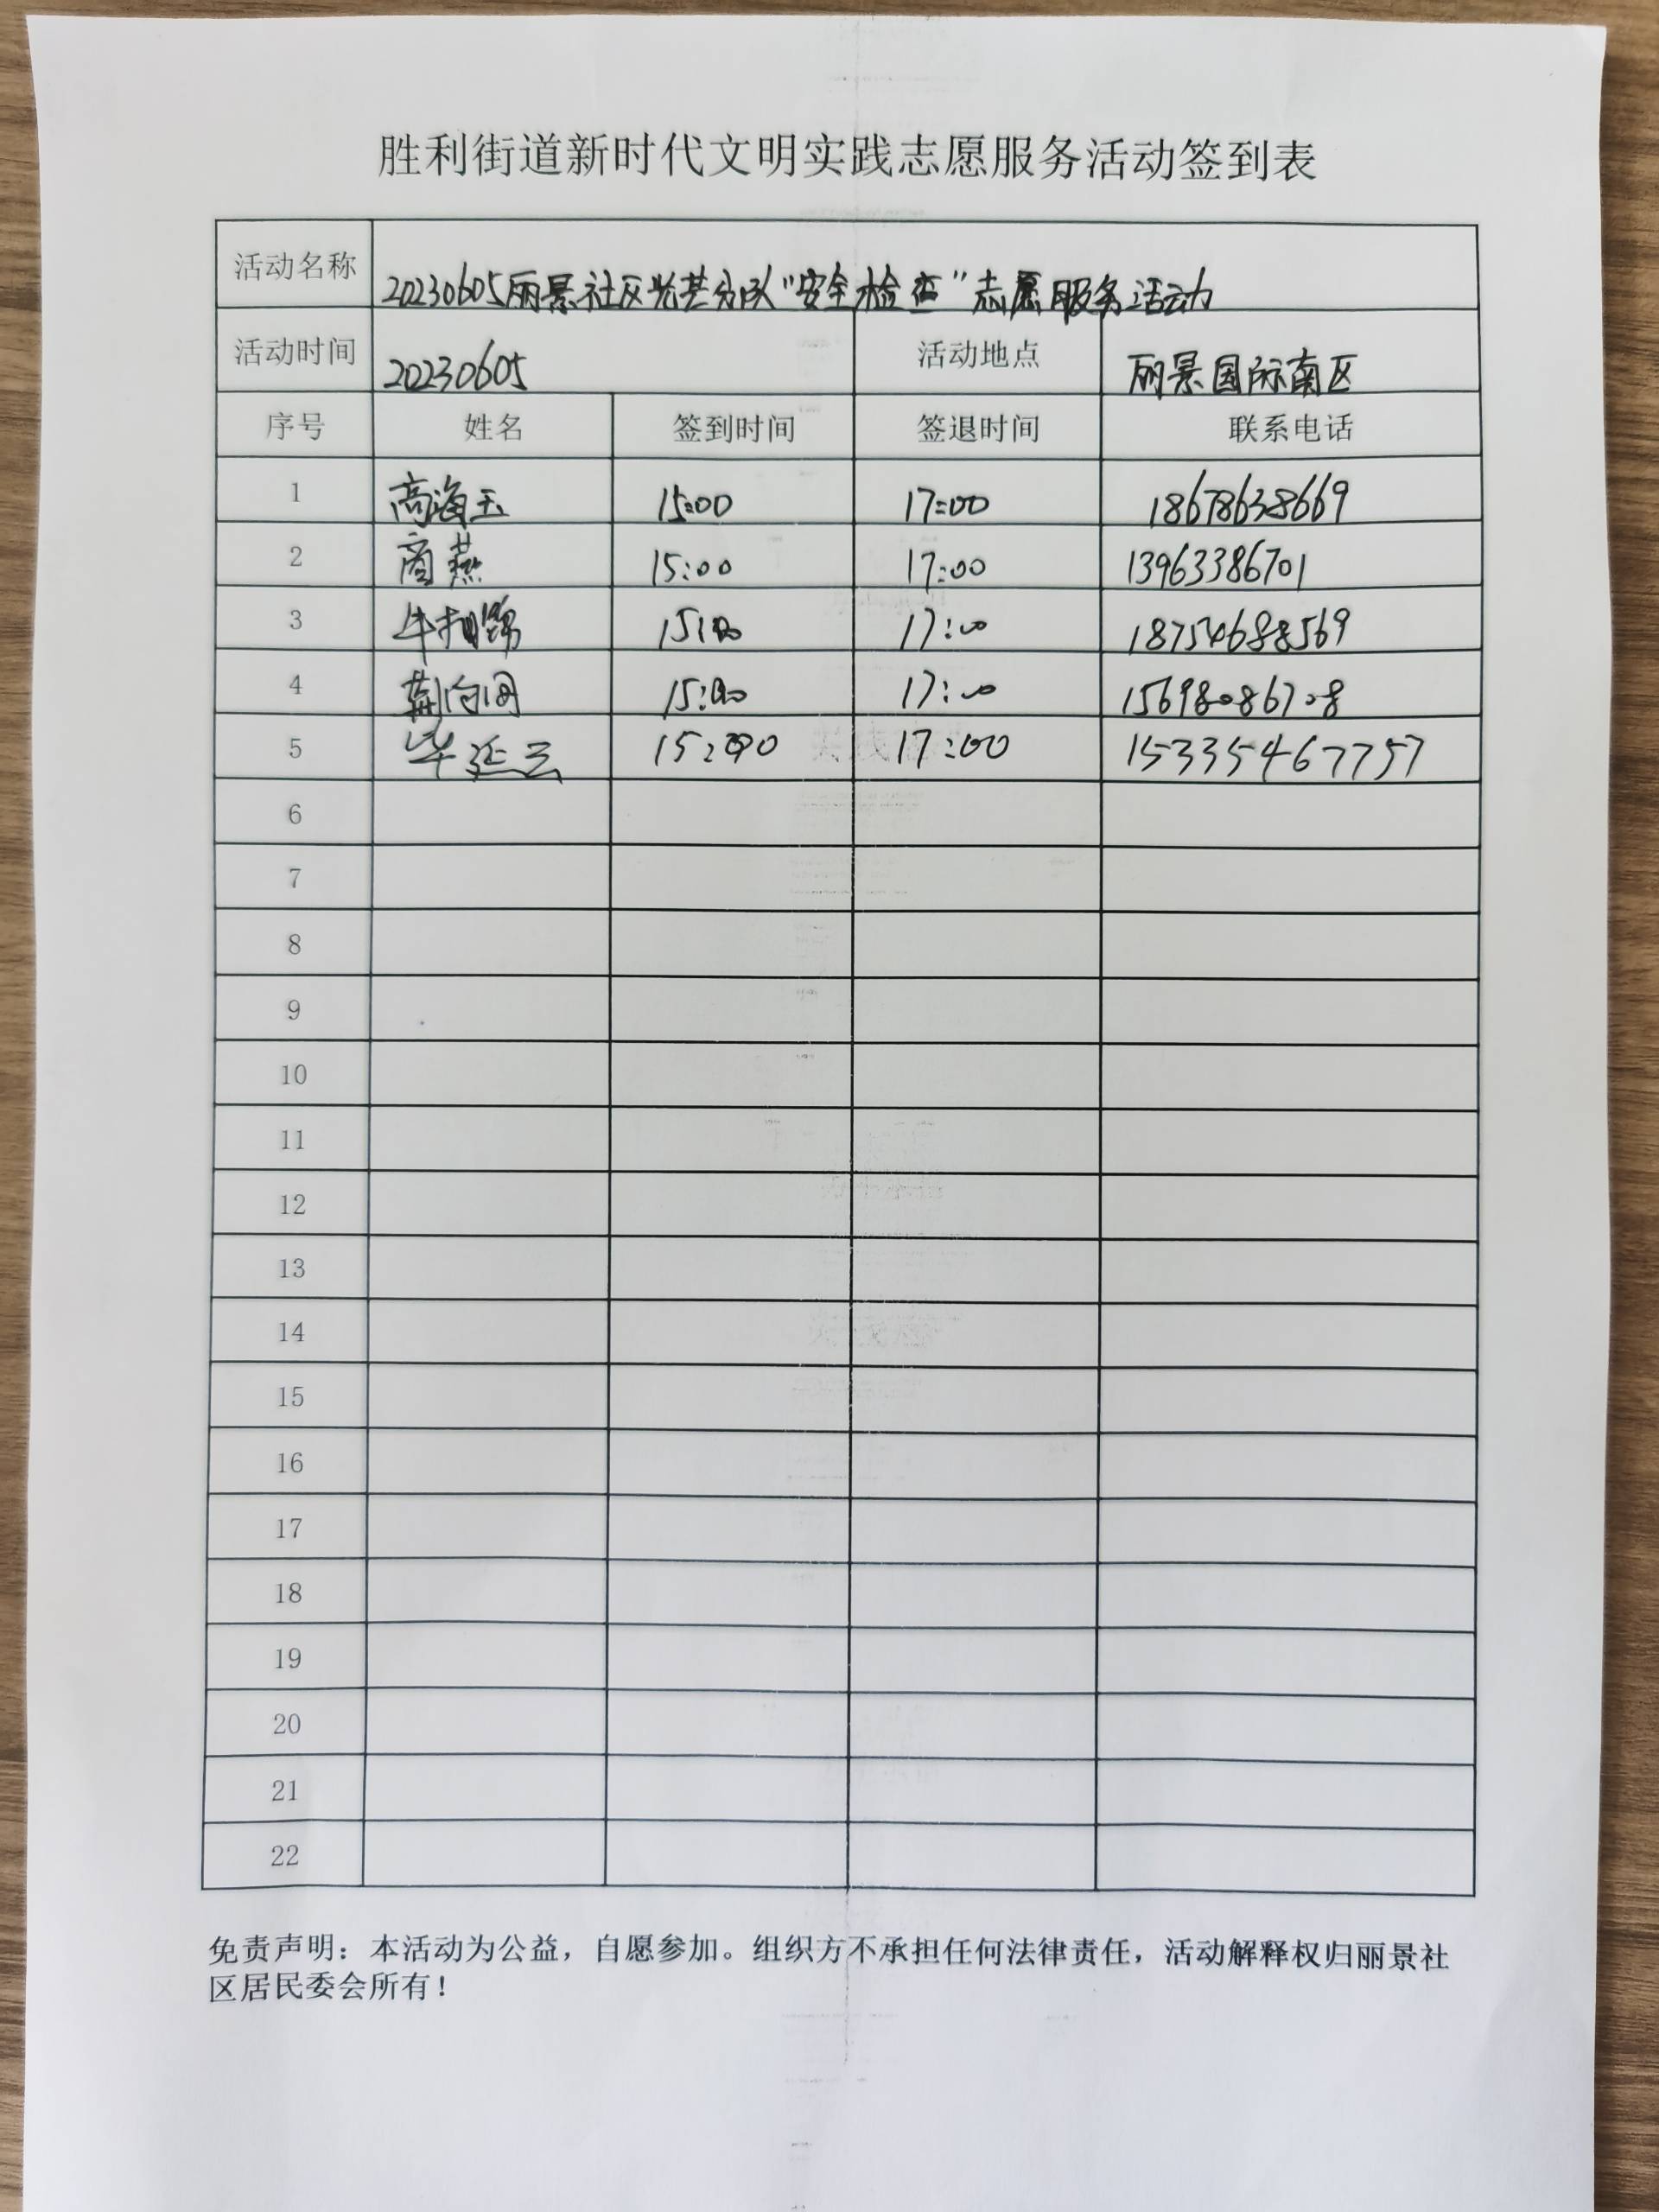 胜利街道新时代文明实践志愿服务活动签到表
活动名称 20230605丽景社区党苦分队“安全检查”志愿服务活动
活动时间 20230605 活动地点 丽景国际南区
序号 姓名 签到时间 签退时间 联系电话
1 高海玉 15:00 17:00 18678638669
2 商燕 15:00 17:00 13963386701
3 15:00 17:00 18754688569
4 15:00 17:00 15698086708
5 毕延云 15:00 17:00 15335467757
6
7
8
9
10
11
12
13
14
15
16
17
18
19
20
21
22
免责声明：本活动为公益，自愿参加。组织方不承担任何法律责任，活动解释权归丽景社
区居民委会所有！